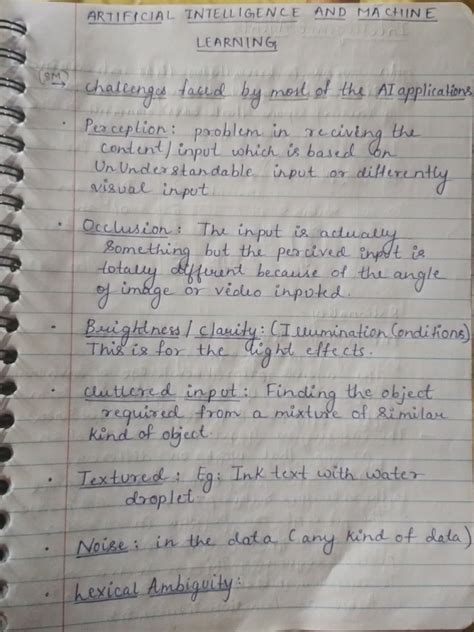 ARTIFICIAL INTELLIGENCE AND MACHINE
LEARNING
5M → Challenges faced by most of the AI applications
• Perception : problem in reciving the
content/input which is based on
UnUnderstandable input or differently
visual input
• Occlusion : The input is actually
something but the percived input is
totally different because of the angle
of image or video inputed.
• Brightness / Clarity : (Illumination Conditions)
This is for the light effects.
• Cluttered input : Finding the object
required from a mixture of similar
kind of object.
• Textured : Eg: Ink text with water
droplet
• Noise : in the data (any kind of data)
• Lexical Ambiguity :